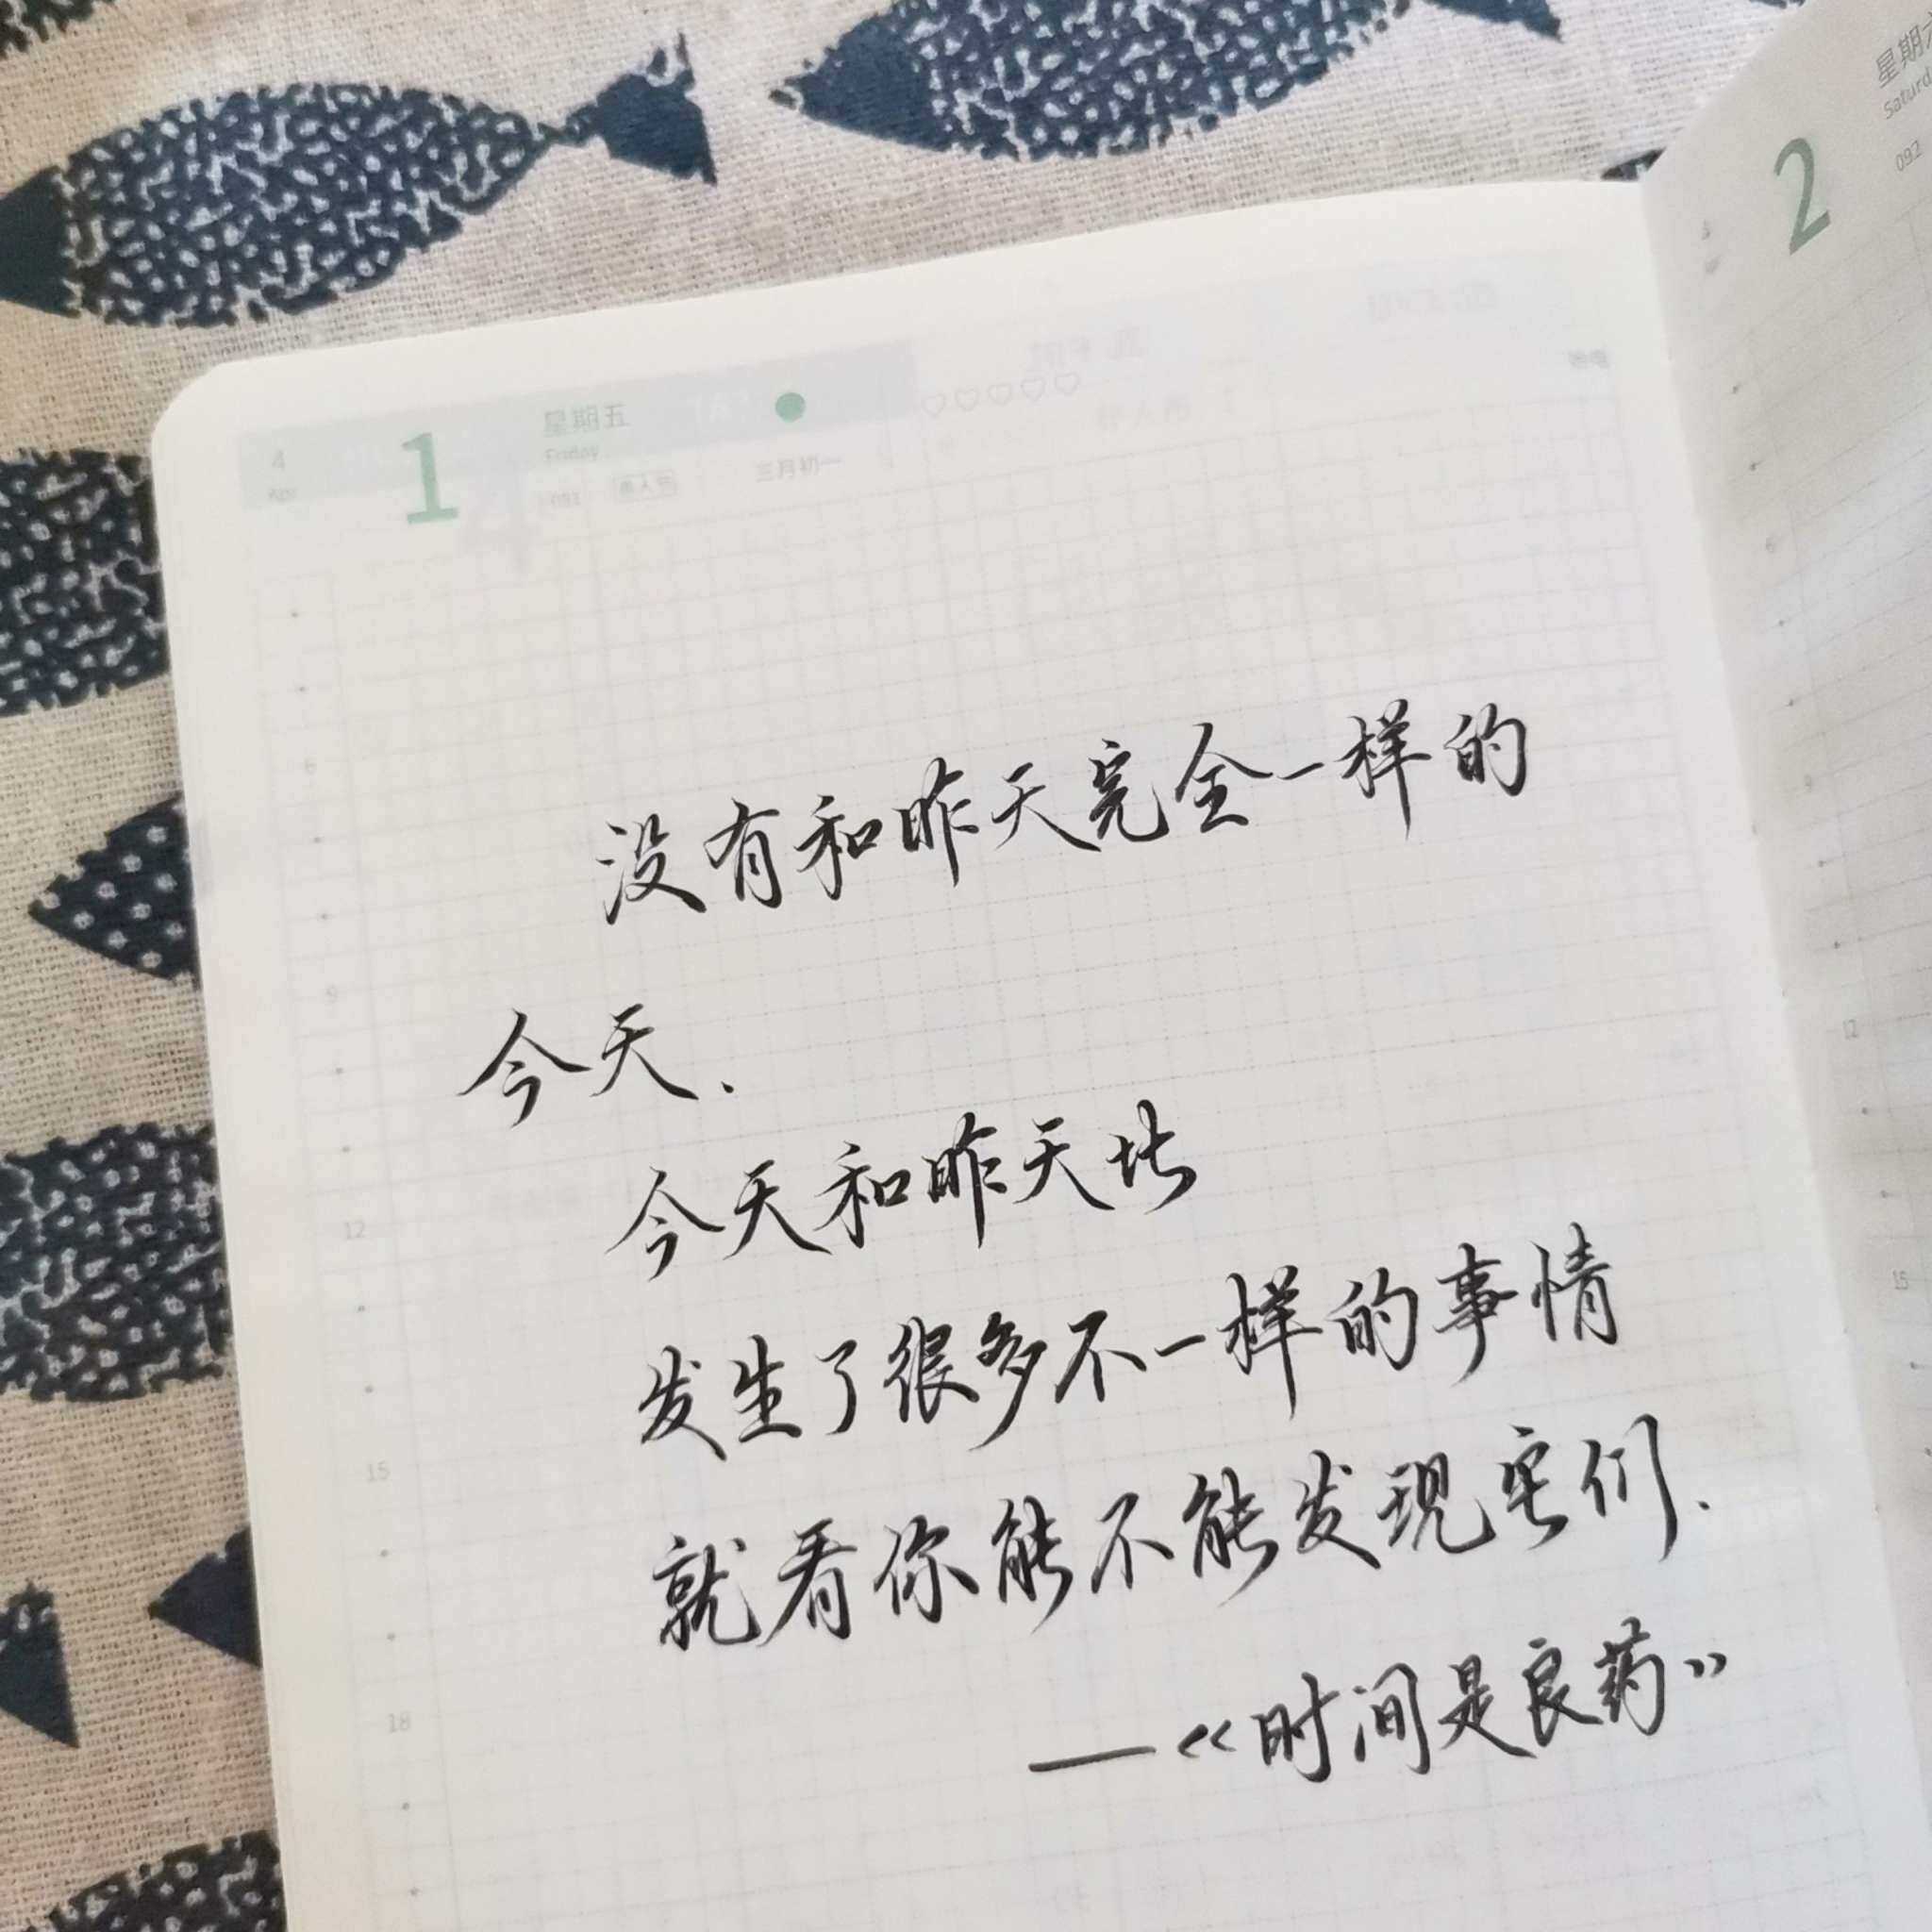 星期六
2
092
4
Apr
1
星期五
Friday
091
愚人节
三月初一
没有和昨天完全一样的
6
今天.
9
今天和昨天比
12
发生了很多不一样的事情
15
就看你能不能发现它们.
18
——《时间是良药》
12
15